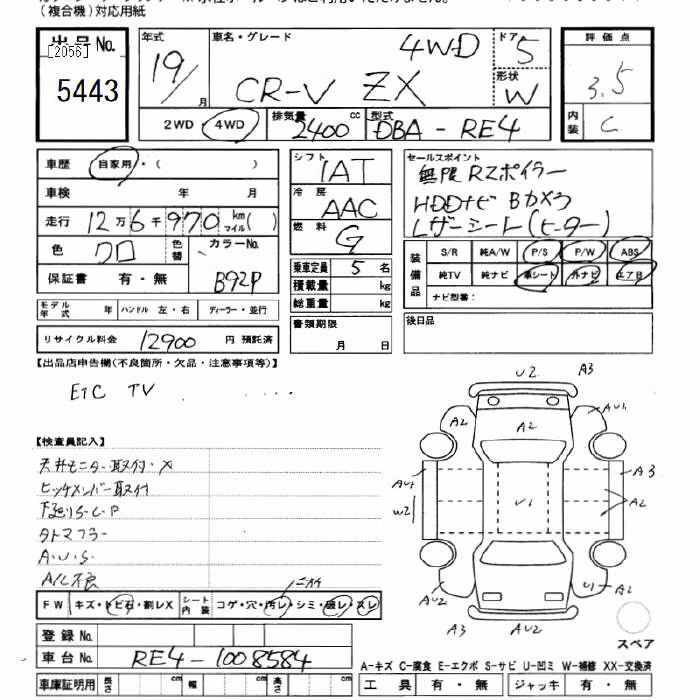 (複合機)対応用紙
出品No.
[2056]
5443
年式
19/
月
車名・グレード
4WD
CR-V ZX
ドア
5
形状
W
2WD・4WD
排気量
2400
cc
型式
DBA-RE4
評価点
3.5
内装
C
車歴
自家用・( )
車検 年 月
走行 12万6千970 km マイル( )
色 クロ 色替 カラーNo. B92P
保証書 有・無
モデル年式 年 ハンドル 左・右 ディーラー・並行
リサイクル料金 12900 円 預託済
シフト
IAT
冷房
AAC
燃料
G
乗車定員 5 名
積載量 kg
総重量 kg
書類期限
月 日
セールスポイント
無限RZポイラー
HDDナビ Bカメラ
レザーシート(ヒーター)
装備品
S/R 純A/W P/S P/W ABS
純TV 純ナビ 革シート 外ナビ エアB
ナビ型番:
後日品
【出品店申告欄(不良箇所・欠品・注意事項等)】
ETC TV
【検査員記入】
天井モニター取付・X
ヒッチメンバー取付
下廻りS・C・P
タトマフラー
A・U・S
A/C不良
FW キズ・トビ石・割レX シート内装 コゲ・穴・汚レ・シミ・破レ・スレ
ニオイ
登録No.
車台No. RE4-1008584
車庫証明用 長さ cm 幅 cm 高さ cm
U2 A3
A2 A2 AU1
AU1 W2 U1 A3 A2
AU2 U1 A2
A3 AU2
スペア
A-キズ C-腐食 E-エクボ S-サビ U-凹ミ W-補修 XX-交換済
工具 有・無 ジャッキ 有・無